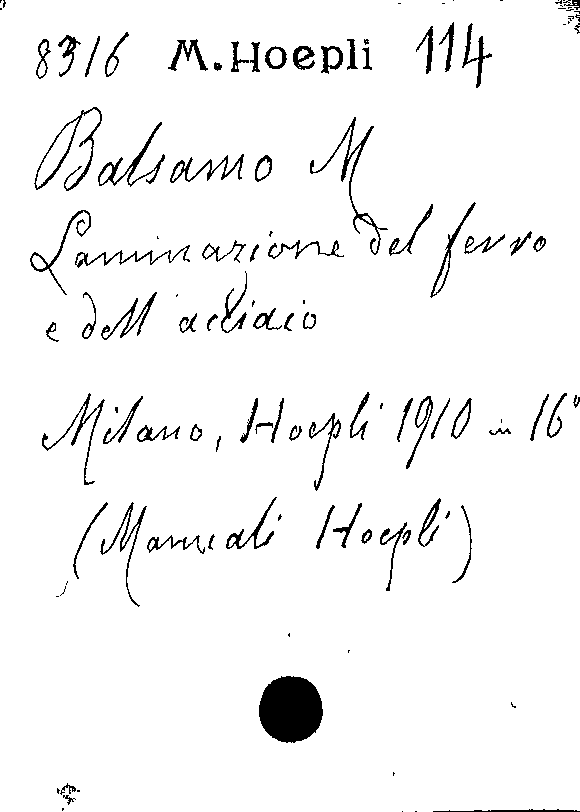 8316 M. Hoepli 114
Balsamo M
Laminazione del ferro
e dell' acciaio
Milano, Hoepli 1910 in 16°
(Manuali Hoepli)